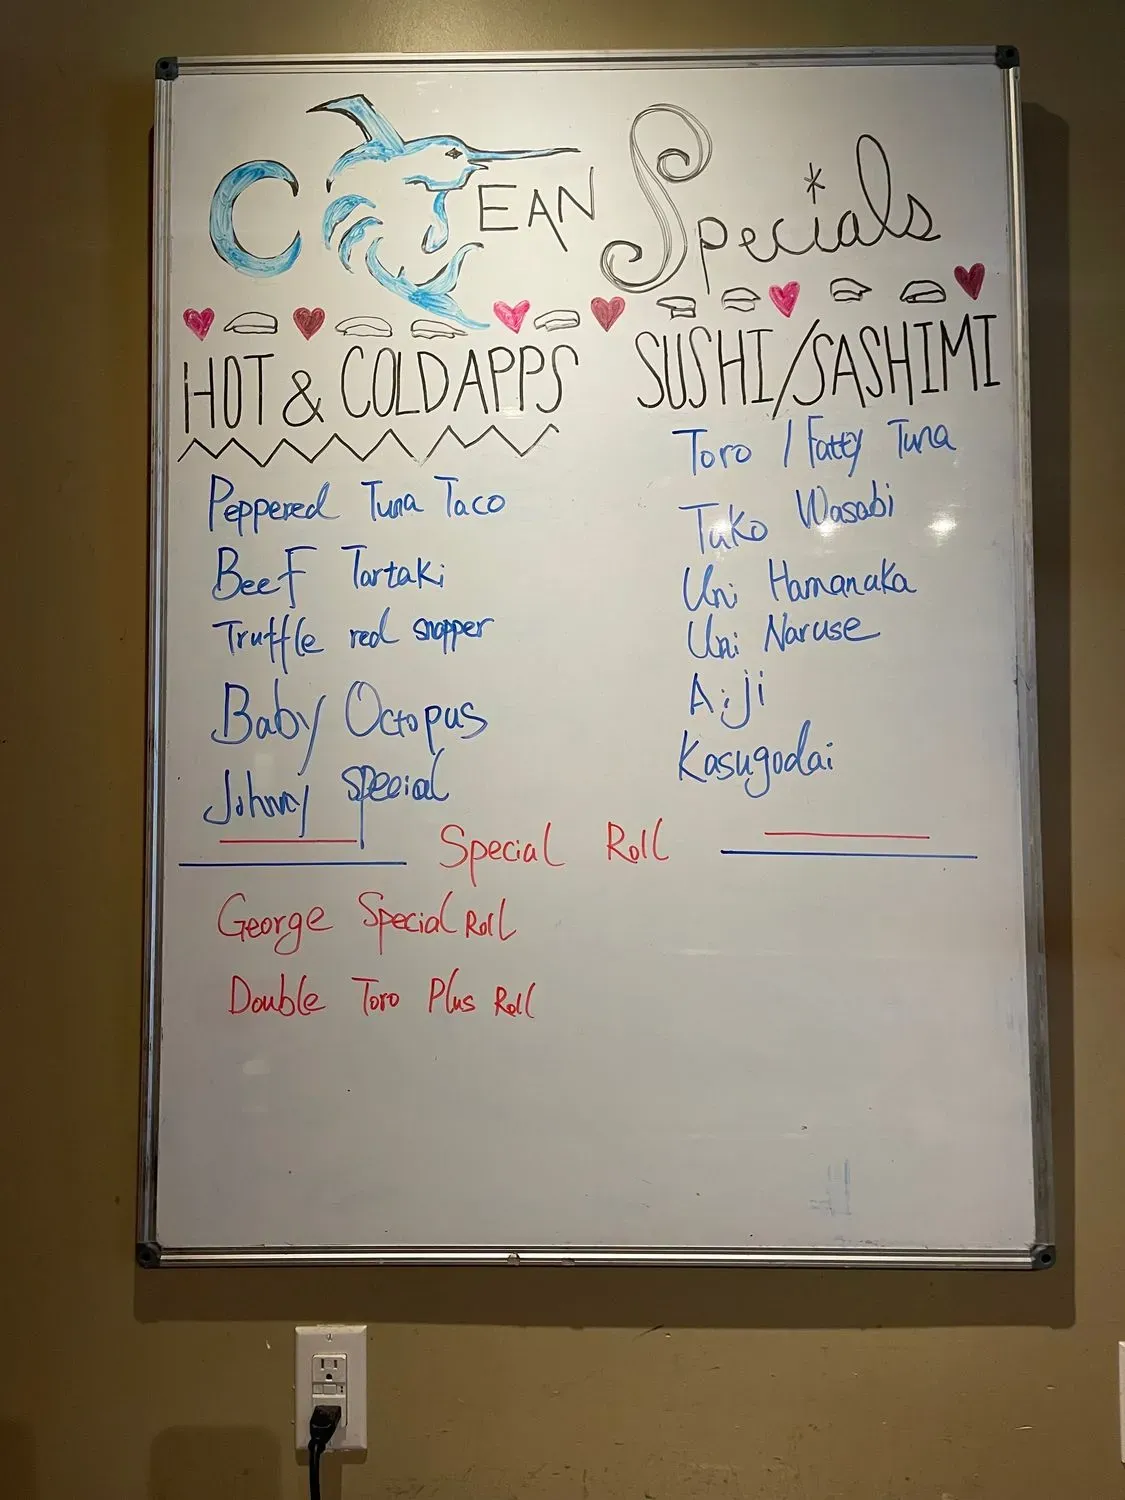 C EAN Specials
HOT & COLD APPS
Peppered Tuna Taco
Beef Tartaki
Truffle red snapper
Baby Octopus
Johnny special
SUSHI/SASHIMI
Toro / Fatty Tuna
Tako Wasabi
Uni Hamanaka
Uni Naruse
Aiji
Kasugodai
Special Roll
George Special Roll
Double Toro Plus Roll